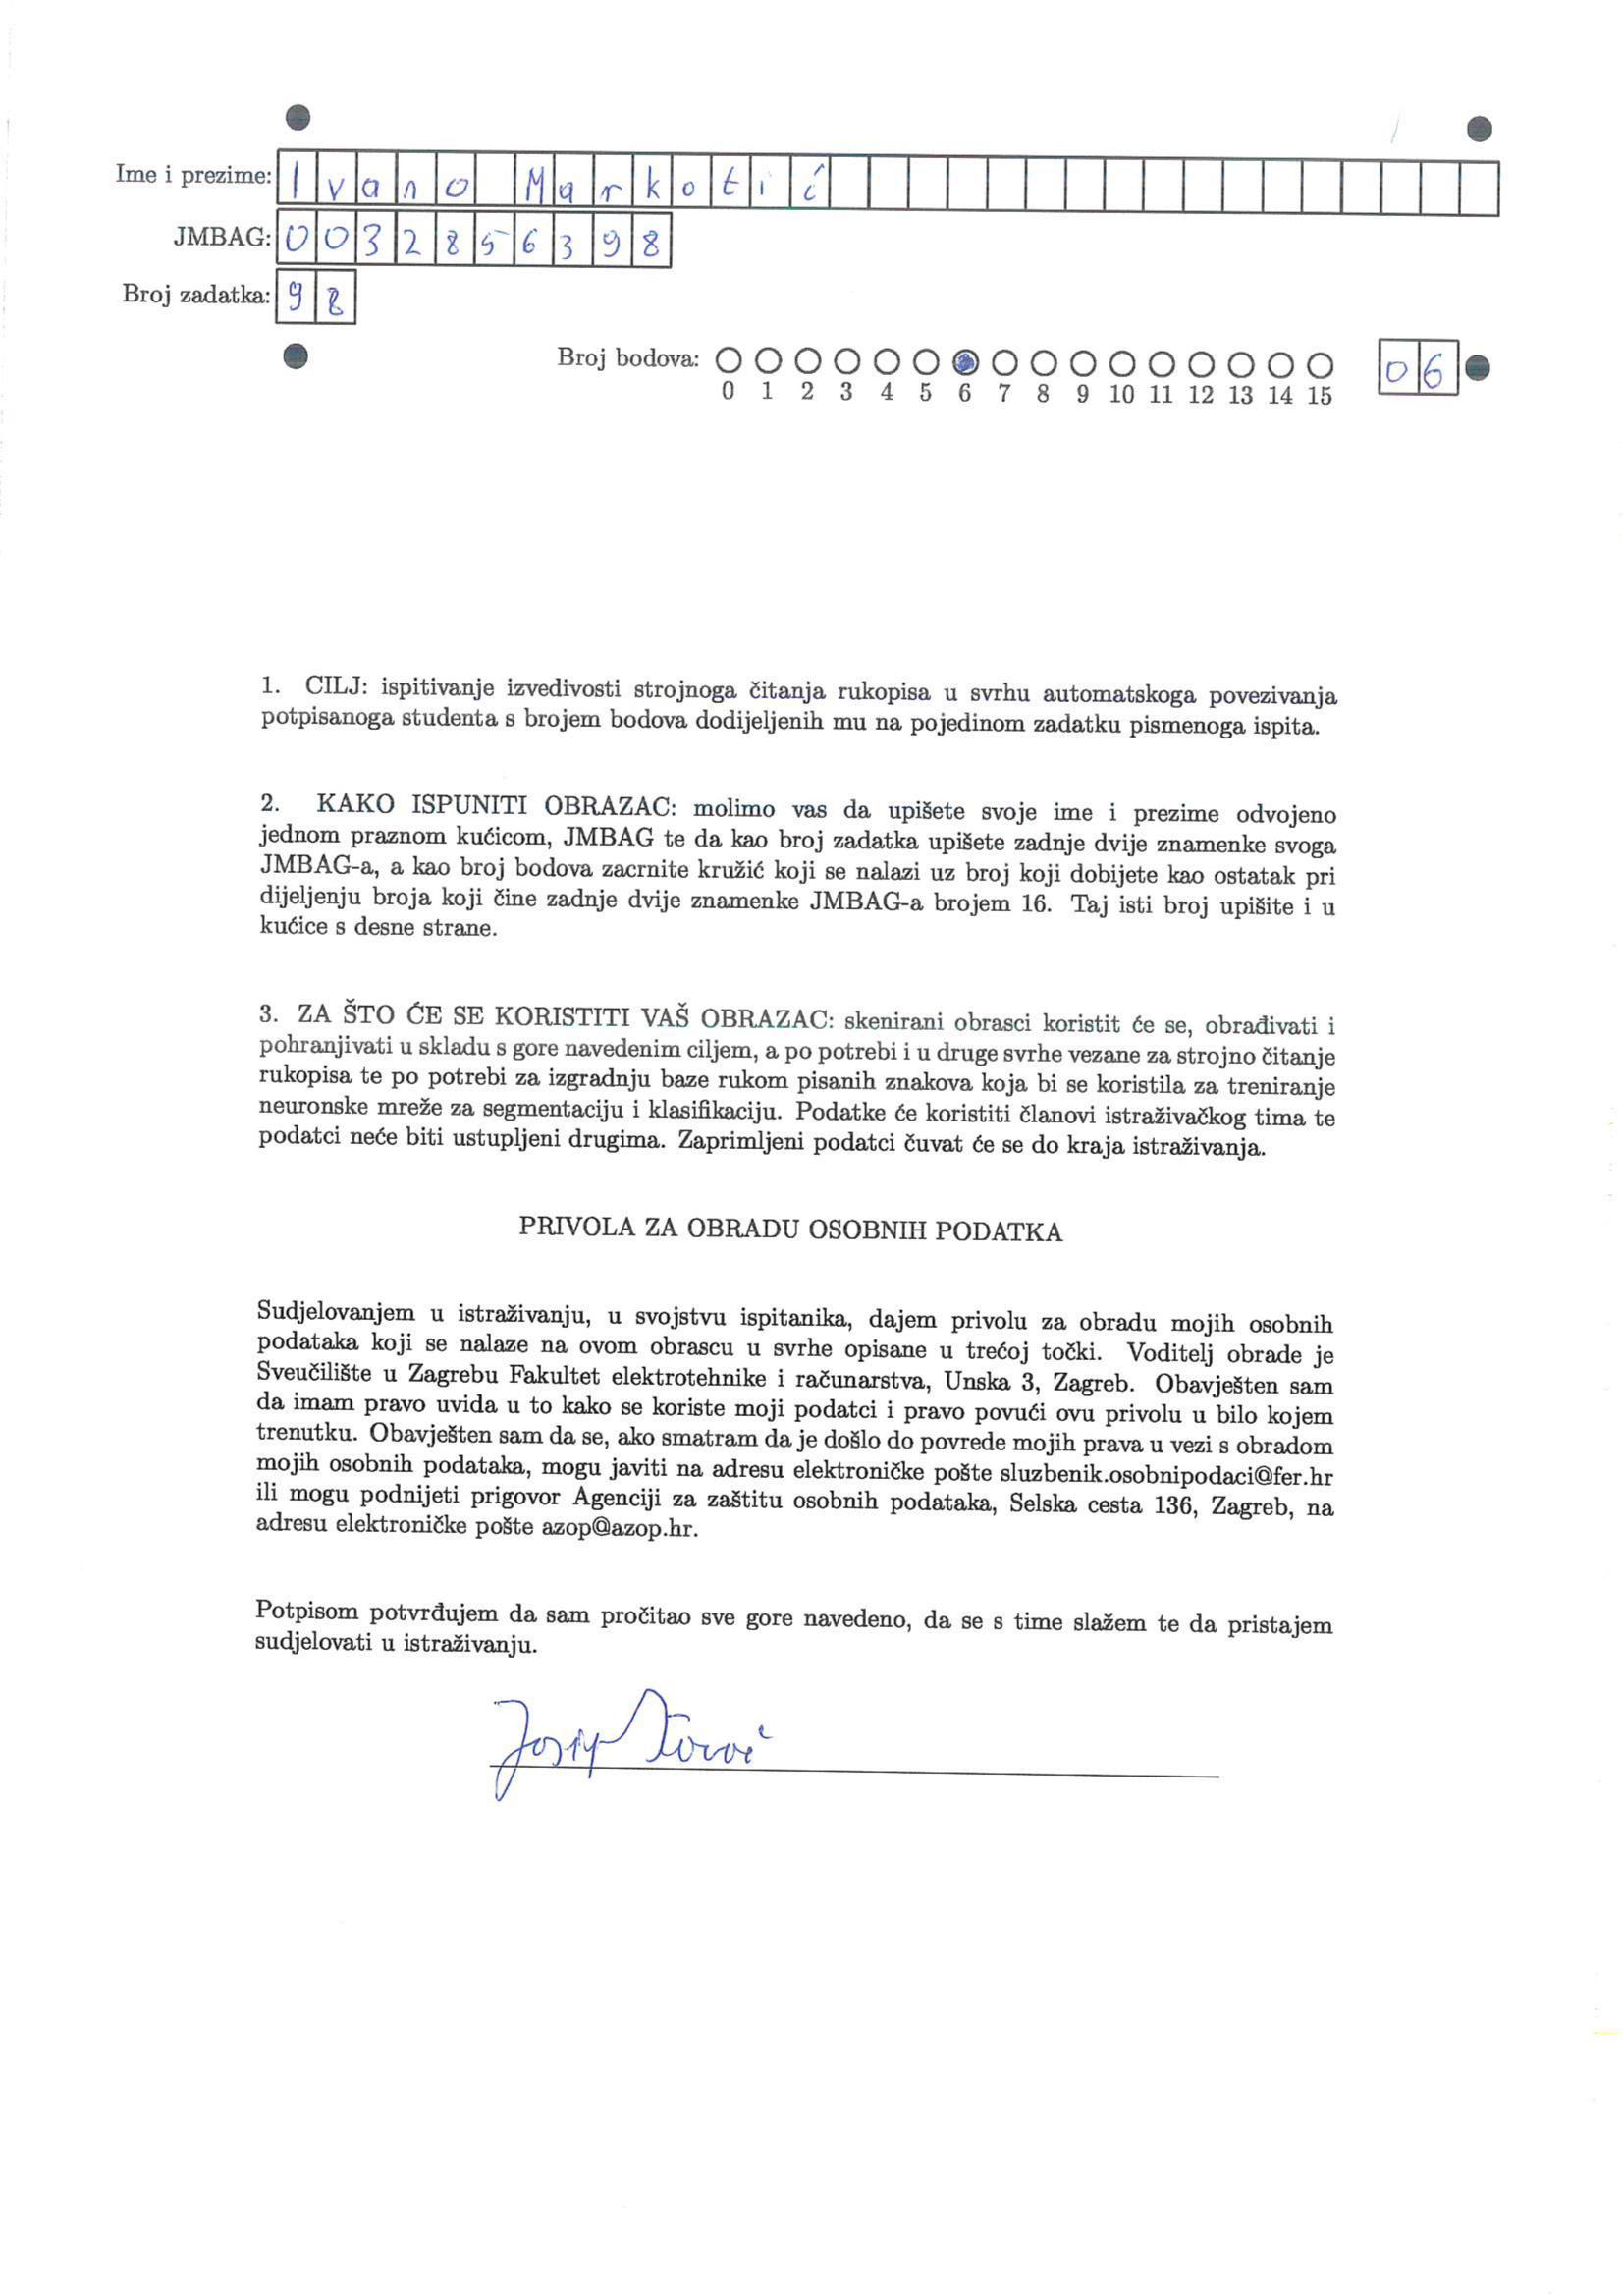 Ime i prezime: Ivano Markotić
JMBAG: 0032856398
Broj zadatka: 98
Broj bodova: 06
0 1 2 3 4 5 6 7 8 9 10 11 12 13 14 15
1. CILJ: ispitivanje izvedivosti strojnoga čitanja rukopisa u svrhu automatskoga povezivanja
potpisanoga studenta s brojem bodova dodijeljenih mu na pojedinom zadatku pismenoga ispita.
2. KAKO ISPUNITI OBRAZAC: molimo vas da upišete svoje ime i prezime odvojeno
jednom praznom kućicom, JMBAG te da kao broj zadatka upišete zadnje dvije znamenke svoga
JMBAG-a, a kao broj bodova zacrnite kružić koji se nalazi uz broj koji dobijete kao ostatak pri
dijeljenju broja koji čine zadnje dvije znamenke JMBAG-a brojem 16. Taj isti broj upišite i u
kućice s desne strane.
3. ZA ŠTO ĆE SE KORISTITI VAŠ OBRAZAC: skenirani obrasci koristit će se, obrađivati i
pohranjivati u skladu s gore navedenim ciljem, a po potrebi i u druge svrhe vezane za strojno čitanje
rukopisa te po potrebi za izgradnju baze rukom pisanih znakova koja bi se koristila za treniranje
neuronske mreže za segmentaciju i klasifikaciju. Podatke će koristiti članovi istraživačkog tima te
podatci neće biti ustupljeni drugima. Zaprimljeni podatci čuvat će se do kraja istraživanja.
PRIVOLA ZA OBRADU OSOBNIH PODATKA
Sudjelovanjem u istraživanju, u svojstvu ispitanika, dajem privolu za obradu mojih osobnih
podataka koji se nalaze na ovom obrascu u svrhe opisane u trećoj točki. Voditelj obrade je
Sveučilište u Zagrebu Fakultet elektrotehnike i računarstva, Unska 3, Zagreb. Obavješten sam
da imam pravo uvida u to kako se koriste moji podatci i pravo povući ovu privolu u bilo kojem
trenutku. Obavješten sam da se, ako smatram da je došlo do povrede mojih prava u vezi s obradom
mojih osobnih podataka, mogu javiti na adresu elektroničke pošte sluzbenik.osobnipodaci@fer.hr
ili mogu podnijeti prigovor Agenciji za zaštitu osobnih podataka, Selska cesta 136, Zagreb, na
adresu elektroničke pošte azop@azop.hr.
Potpisom potvrđujem da sam pročitao sve gore navedeno, da se s time slažem te da pristajem
sudjelovati u istraživanju.
Josip